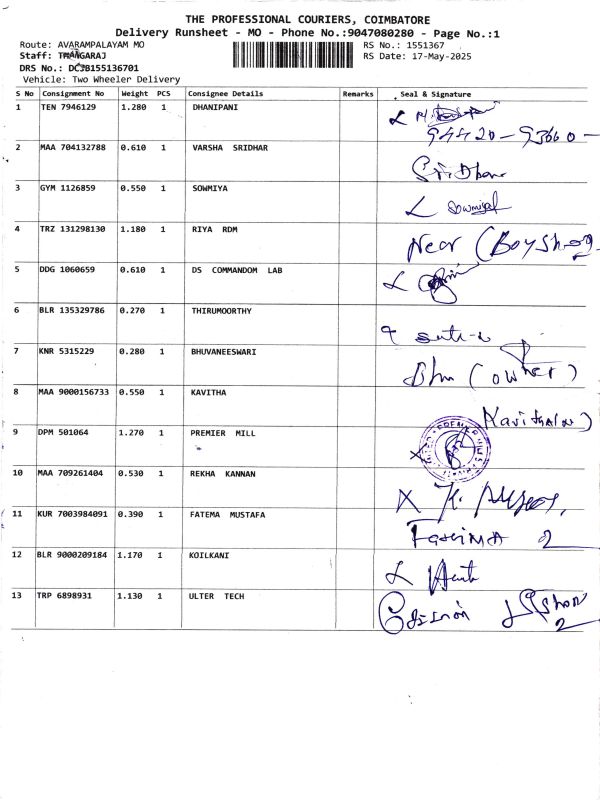 THE PROFESSIONAL COURIERS, COIMBATORE
Delivery Runsheet - MO - Phone No.:9047080280 - Page No.:1
Route: AVARAMPALAYAM MO
RS No.: 1551367
Staff: THANGARAJ
RS Date: 17-May-2025
DRS No.: DCJB155136701
Vehicle: Two Wheeler Delivery
S No Consignment No Weight PCS Consignee Details Remarks Seal & Signature
1 TEN 7946129 1.280 1 DHANIPANI
94420-93660-
2 MAA 704132788 0.610 1 VARSHA SRIDHAR
SriDhar
3 GYM 1126859 0.550 1 SOWMIYA
Sowmiya
4 TRZ 131298130 1.180 1 RIYA RDM
Near (Boy Shop
5 DDG 1060659 0.610 1 DS COMMANDOM LAB
6 BLR 135329786 0.270 1 THIRUMOORTHY
7 KNR 5315229 0.280 1 BHUVANEESWARI
(owner)
8 MAA 9000156733 0.550 1 KAVITHA
Kavitha
9 DPM 501064 1.270 1 PREMIER MILL
PREMIER
10 MAA 709261404 0.530 1 REKHA KANNAN
11 KUR 7003984091 0.390 1 FATEMA MUSTAFA
2
12 BLR 9000209184 1.170 1 KOILKANI
13 TRP 6898931 1.130 1 ULTER TECH
2